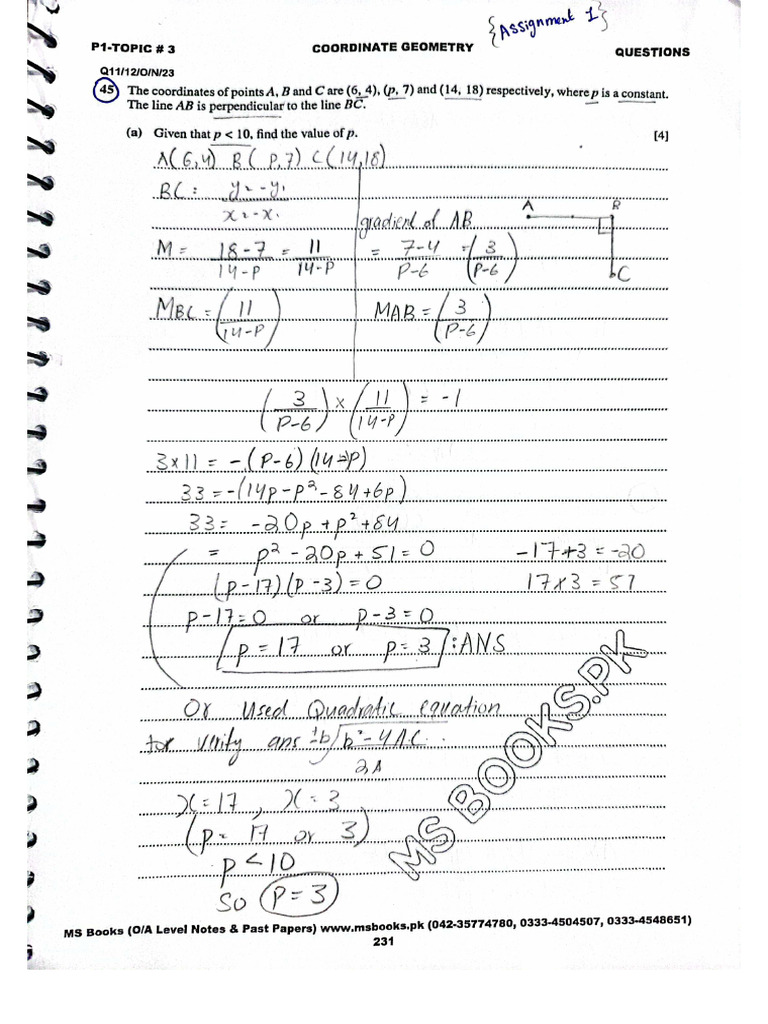 {Assignment 1}
P1-TOPIC # 3 COORDINATE GEOMETRY QUESTIONS
Q11/12/O/N/23
45 The coordinates of points A, B and C are (6, 4), (p, 7) and (14, 18) respectively, where p is a constant.
The line AB is perpendicular to the line BC.
(a) Given that p < 10, find the value of p. [4]
A(6,4) B(P,7) C(14,18)
BC: y₂-y₁
x₂-x₁
gradient of AB
A B
C
M = 18-7/14-P = 11/14-P
= 7-4/P-6 = (3/P-6)
MBC = (11/14-P)
MAB = (3/P-6)
(3/P-6) x (11/14-P) = -1
3x11 = -(P-6)(14-P)
33 = -(14p-p²-84+6p)
33 = -20p+p²+84
= p²-20p+51=0 -17+3=-20
(p-17)(p-3)=0 17x3=51
p-17=0 or p-3=0
p=17 or p=3 :ANS
Or Used Quadratic equation
for verify ans ±b√b²-4A.C.
2A
x=17, x=3
(p= 17 or 3)
p<10
So p=3
MS BOOKS.PK
MS Books (O/A Level Notes & Past Papers) www.msbooks.pk (042-35774780, 0333-4504507, 0333-4548651)
231